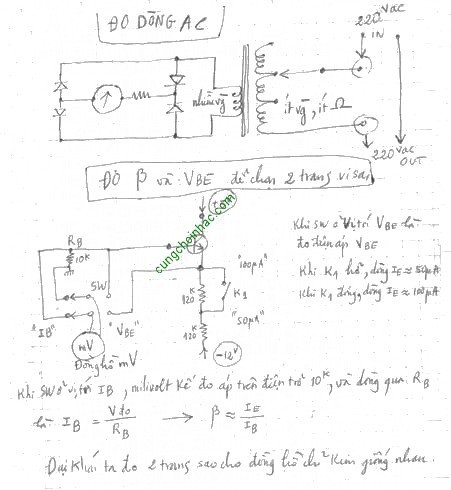 ĐO DÒNG AC
220 VAC
IN
nhiều vg
ít vg, ít Ω
220 VAC
OUT
ĐO β và VBE để chọn 2 trang visai
cungchoinhac.com
RB
10K
SW
"IB"
"VBE"
mV
Đồng hồ mV
"100µA"
K1
120K
"50µA"
120K
-12V
Khi SW ở vị trí VBE là
đo điện áp VBE
Khi K1 hở, dòng IE ≈ 50µA
Khi K1 đóng, dòng IE ≈ 100µA
Khi SW ở vị trí IB, milivolt kế đo áp trên điện trở 10K, và dòng qua RB
là: IB = Vđo / RB → β ≈ IE / IB
Đại khái ta đo 2 trang sao cho đồng hồ chỉ kim giống nhau.